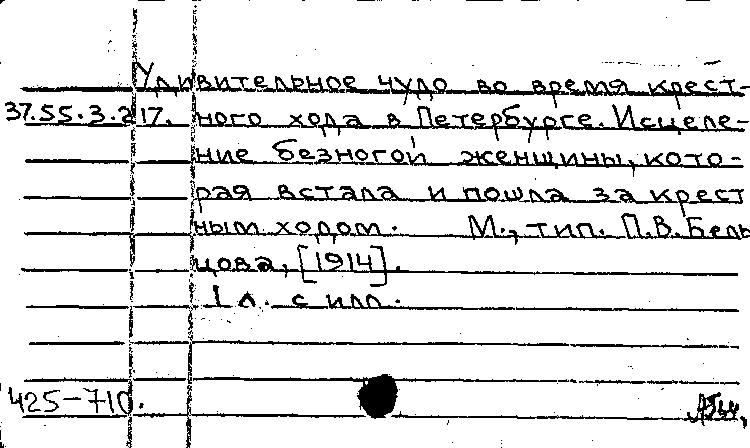 Удивительное чудо во время крест-
37.55.3.217. ного хода в Петербурге. Исцеле-
ние безногой женщины, кото-
рая встала и пошла за крест
ным ходом. М., тип. П.В. Бель
цова, [1914].
1 л. с илл.
425-710.